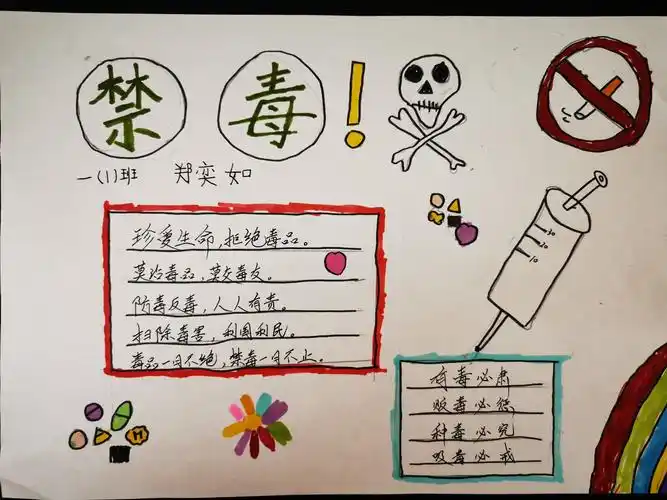 禁毒!
一(1)班 郑奕如
珍爱生命,拒绝毒品。
莫沾毒品,莫交毒友。
防毒反毒,人人有责。
扫除毒害,利国利民。
毒品一日不绝,禁毒一日不止。
30
20
10
有毒必肃
贩毒必惩
种毒必究
吸毒必戒